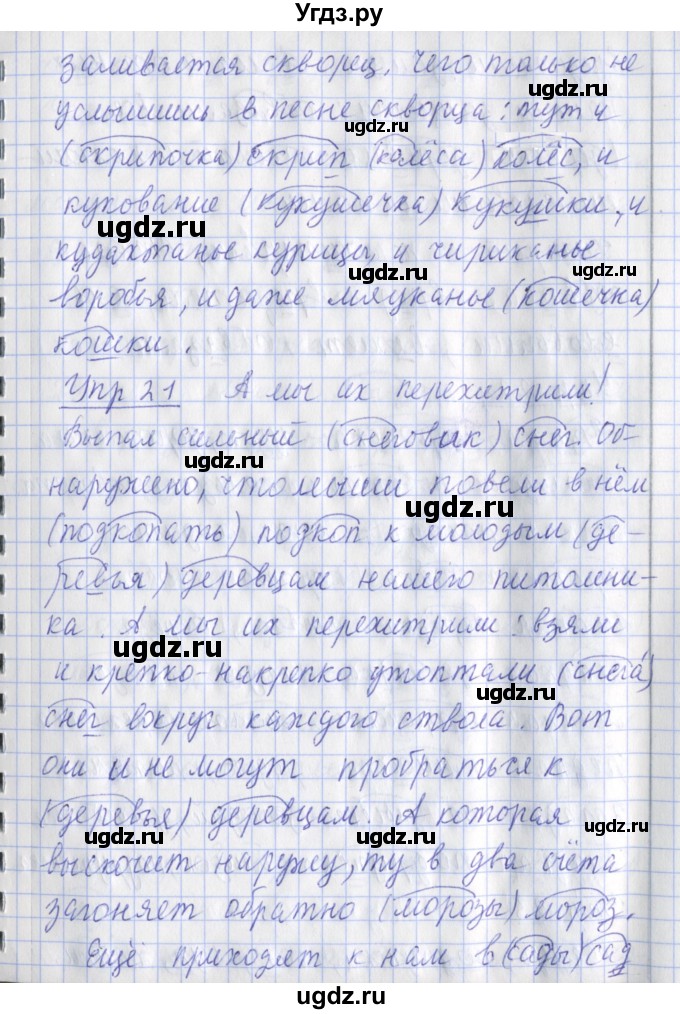 Угдз.ру
заливается скворец, чего только не
услышишь в песне скворца: тут и
ugdz.ru
(скрипочка) скрип (колёса) колёс, и
кукование (кукушечка) кукушки, и
ugdz.ru ugdz.ru
кудахтанье курицы, и чириканье
ugdz.ru ugdz.ru
воробья, и даже мяуканье (кошечка)
кошки.
ugdz.ru
Упр 21 А мы их перехитрили!
Выпал сильный (снеговик) снег. Об-
ugdz.ru
наружено, что мыши повели в нём
ugdz.ru
(подкопать) подкоп к молодым (де-
ревья) деревцам нашего питомни-
ка. А мы их перехитрили: взяли
ugdz.ru
и крепко-накрепко утоптали (снега)
ugdz.ru
снег вокруг каждого ствола. Вот
они и не могут пробраться к
(деревья) деревцам. А которая
ugdz.ru ugdz.ru ugdz.ru
выскочит наружу, ту в два счёта
загоняет обратно (морозы) мороз.
ugdz.ru
Ещё приходят к нам в (сады) сад
ugdz.ru